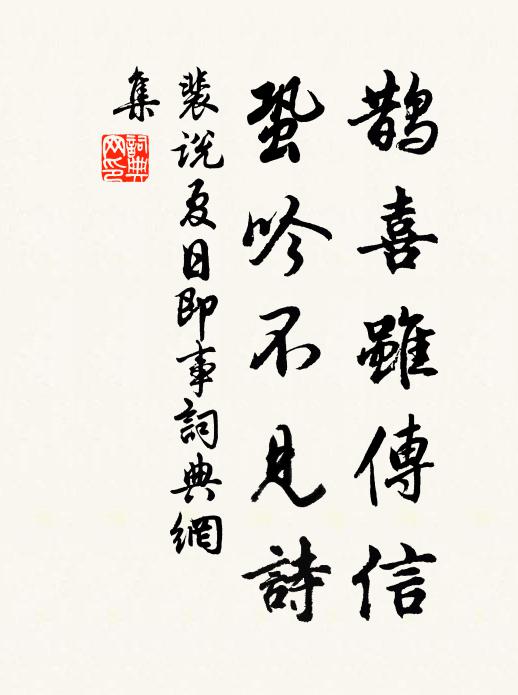 鵲喜雖傳信
蛩吟不見詩
裴說夏日即事詞典網
集
詞典
网印